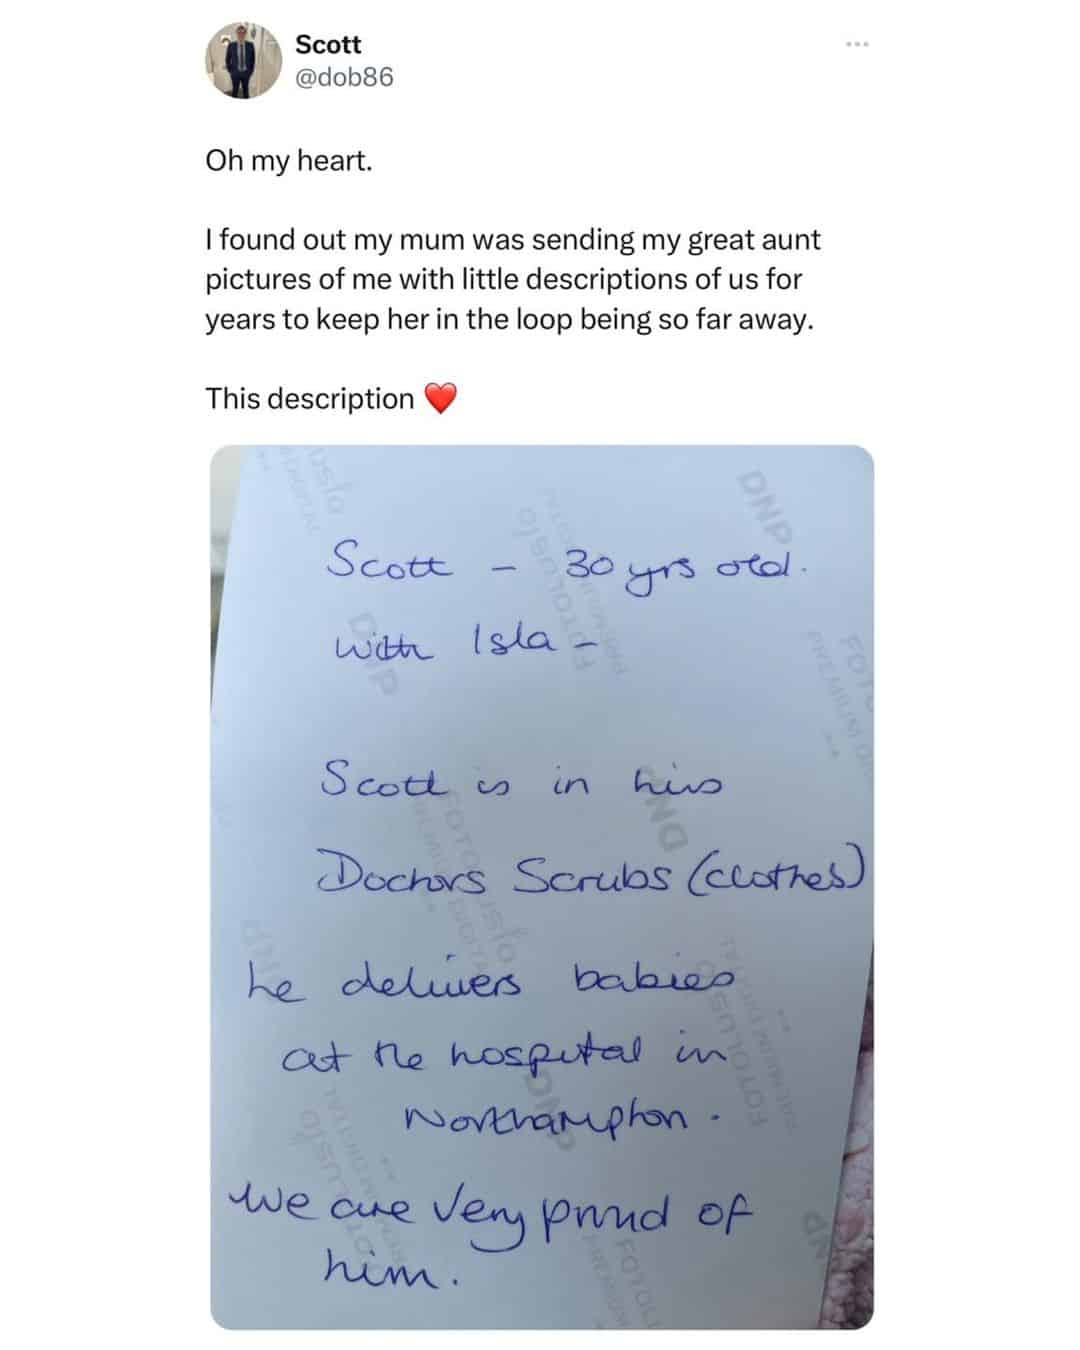 Scott
@dob86
Oh my heart.
I found out my mum was sending my great aunt
pictures of me with little descriptions of us for
years to keep her in the loop being so far away.
This description ❤️
Scott - 30 yrs old.
with Isla -
Scott is in his
Doctors Scrubs (clothes)
he delivers babies
at the hospital in
Northampton.
We are very proud of
him.
DNP
FOTOLUSIO
PREMIUM DIGITAL